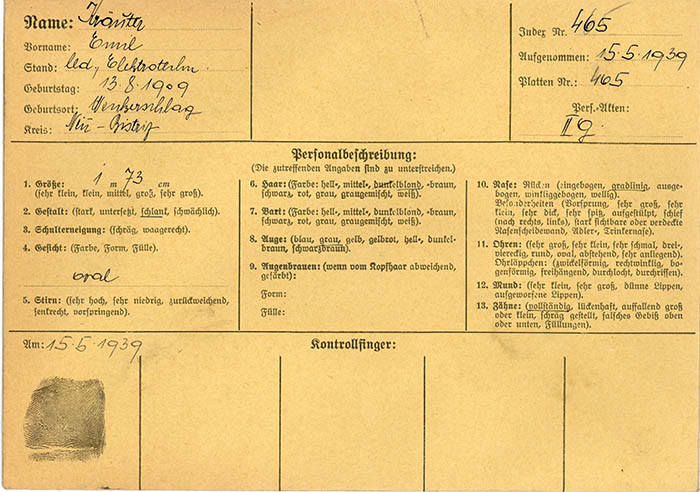 Name: Kräuter
Vorname: Emil
Stand: led., Elektrotechn
Geburtstag: 13.8.1909
Geburtsort:
Kreis: Neu-Bistritz
Index Nr. 465
Aufgenommen: 15.5.1939
Platten Nr.: 465
Pers.-Akten:
II g
Personalbeschreibung:
(Die zutreffenden Angaben sind zu unterstreichen.)
1. Größe: 1 m 73 cm
(sehr klein, klein, mittel, groß, sehr groß).
2. Gestalt: (stark, untersetzt, schlank, schwächlich).
3. Schulterneigung: (schräg, waagerecht).
4. Gesicht: (Farbe, Form, Fülle).
oval
5. Stirn: (sehr hoch, sehr niedrig, zurückweichend,
senkrecht, vorspringend).
6. Haar: (Farbe: hell-, mittel-, dunkelblond, -braun,
schwarz, rot, grau, graugemischt, weiß).
7. Bart: (Farbe: hell-, mittel-, dunkelblond, -braun,
schwarz, rot, grau, graugemischt, weiß).
8. Auge: (blau, grau, gelb, gelbrot, hell-, dunkel-
braun, schwarzbraun).
9. Augenbrauen: (wenn vom Kopfhaar abweichend,
gefärbt):
Form:
Fülle:
10. Nase: Rücken (eingebogen, gradlinig, ausge-
bogen, winkliggebogen, wellig).
Besonderheiten (Vorsprung, sehr groß, sehr
klein, sehr dick, sehr spitz, aufgestülpt, schief
(nach rechts, links), stark sichtbare oder verdeckte
Nasenscheidewand, Adler-, Trinkernase).
11. Ohren: (sehr groß, sehr klein, sehr schmal, drei-,
viereckig, rund, oval, abstehend, sehr anliegend).
Ohrläppchen: (zwickelförmig, rechtwinklig, bo-
genförmig, freihängend, durchlocht, durchrissen).
12. Mund: (sehr klein, sehr groß, dünne Lippen,
aufgeworfene Lippen).
13. Zähne: (vollständig, lückenhaft, auffallend groß
oder klein, schräg gestellt, falsches Gebiß oben
oder unten, Füllungen).
Am: 15.5.1939
Kontrollfinger: